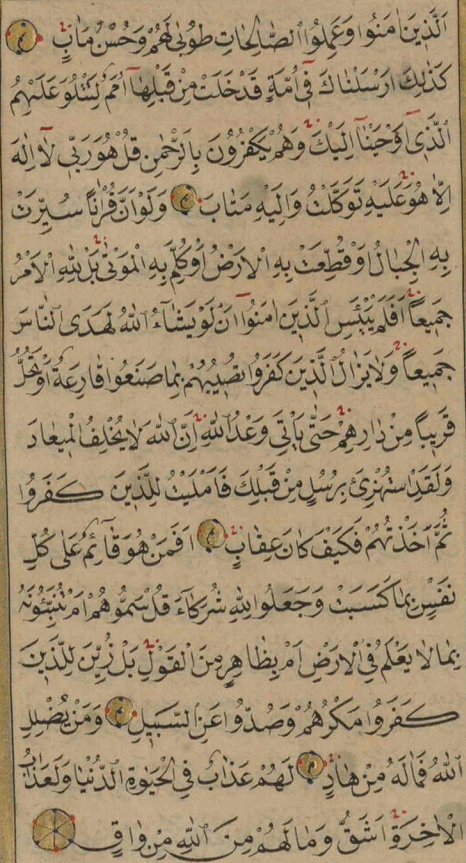 اَلَّذِينَ اٰمَنُوا وَعَمِلُوا الصَّالِحَاتِ طُوبٰى لَهُمْ وَحُسْنُ مَاٰبٍ
كَذٰلِكَ اَرْسَلْنَاكَ فِي اُمَّةٍ قَدْ خَلَتْ مِنْ قَبْلِهَا اُمَمٌ لِتَتْلُوَ عَلَيْهِمُ
الَّذِي اَوْحَيْنَا اِلَيْكَ وَهُمْ يَكْفُرُونَ بِالرَّحْمٰنِ قُلْ هُوَ رَبِّي لَا اِلٰهَ
اِلَّا هُوَ عَلَيْهِ تَوَكَّلْتُ وَاِلَيْهِ مَتَابِ وَلَوْ اَنَّ قُرْاٰنًا سُيِّرَتْ
بِهِ الْجِبَالُ اَوْ قُطِّعَتْ بِهِ الْاَرْضُ اَوْ كُلِّمَ بِهِ الْمَوْتٰى بَلْ لِلّٰهِ الْاَمْرُ
جَمِيعًا اَفَلَمْ يَيْئَسِ الَّذِينَ اٰمَنُوا اَنْ لَوْ يَشَاءُ اللّٰهُ لَهَدَى النَّاسَ
جَمِيعًا وَلَا يَزَالُ الَّذِينَ كَفَرُوا تُصِيبُهُمْ بِمَا صَنَعُوا قَارِعَةٌ اَوْ تَحُلُّ
قَرِيبًا مِنْ دَارِهِمْ حَتّٰى يَاْتِيَ وَعْدُ اللّٰهِ اِنَّ اللّٰهَ لَا يُخْلِفُ الْمِيعَادَ
وَلَقَدِ اسْتُهْزِئَ بِرُسُلٍ مِنْ قَبْلِكَ فَاَمْلَيْتُ لِلَّذِينَ كَفَرُوا
ثُمَّ اَخَذْتُهُمْ فَكَيْفَ كَانَ عِقَابِ اَفَمَنْ هُوَ قَائِمٌ عَلٰى كُلِّ
نَفْسٍ بِمَا كَسَبَتْ وَجَعَلُوا لِلّٰهِ شُرَكَاءَ قُلْ سَمُّوهُمْ اَمْ تُنَبِّئُونَهُ
بِمَا لَا يَعْلَمُ فِي الْاَرْضِ اَمْ بِظَاهِرٍ مِنَ الْقَوْلِ بَلْ زُيِّنَ لِلَّذِينَ
كَفَرُوا مَكْرُهُمْ وَصُدُّوا عَنِ السَّبِيلِ وَمَنْ يُضْلِلِ
اللّٰهُ فَمَا لَهُ مِنْ هَادٍ لَهُمْ عَذَابٌ فِي الْحَيٰوةِ الدُّنْيَا وَلَعَذَابُ
الْاٰخِرَةِ اَشَقُّ وَمَا لَهُمْ مِنَ اللّٰهِ مِنْ وَاقٍ